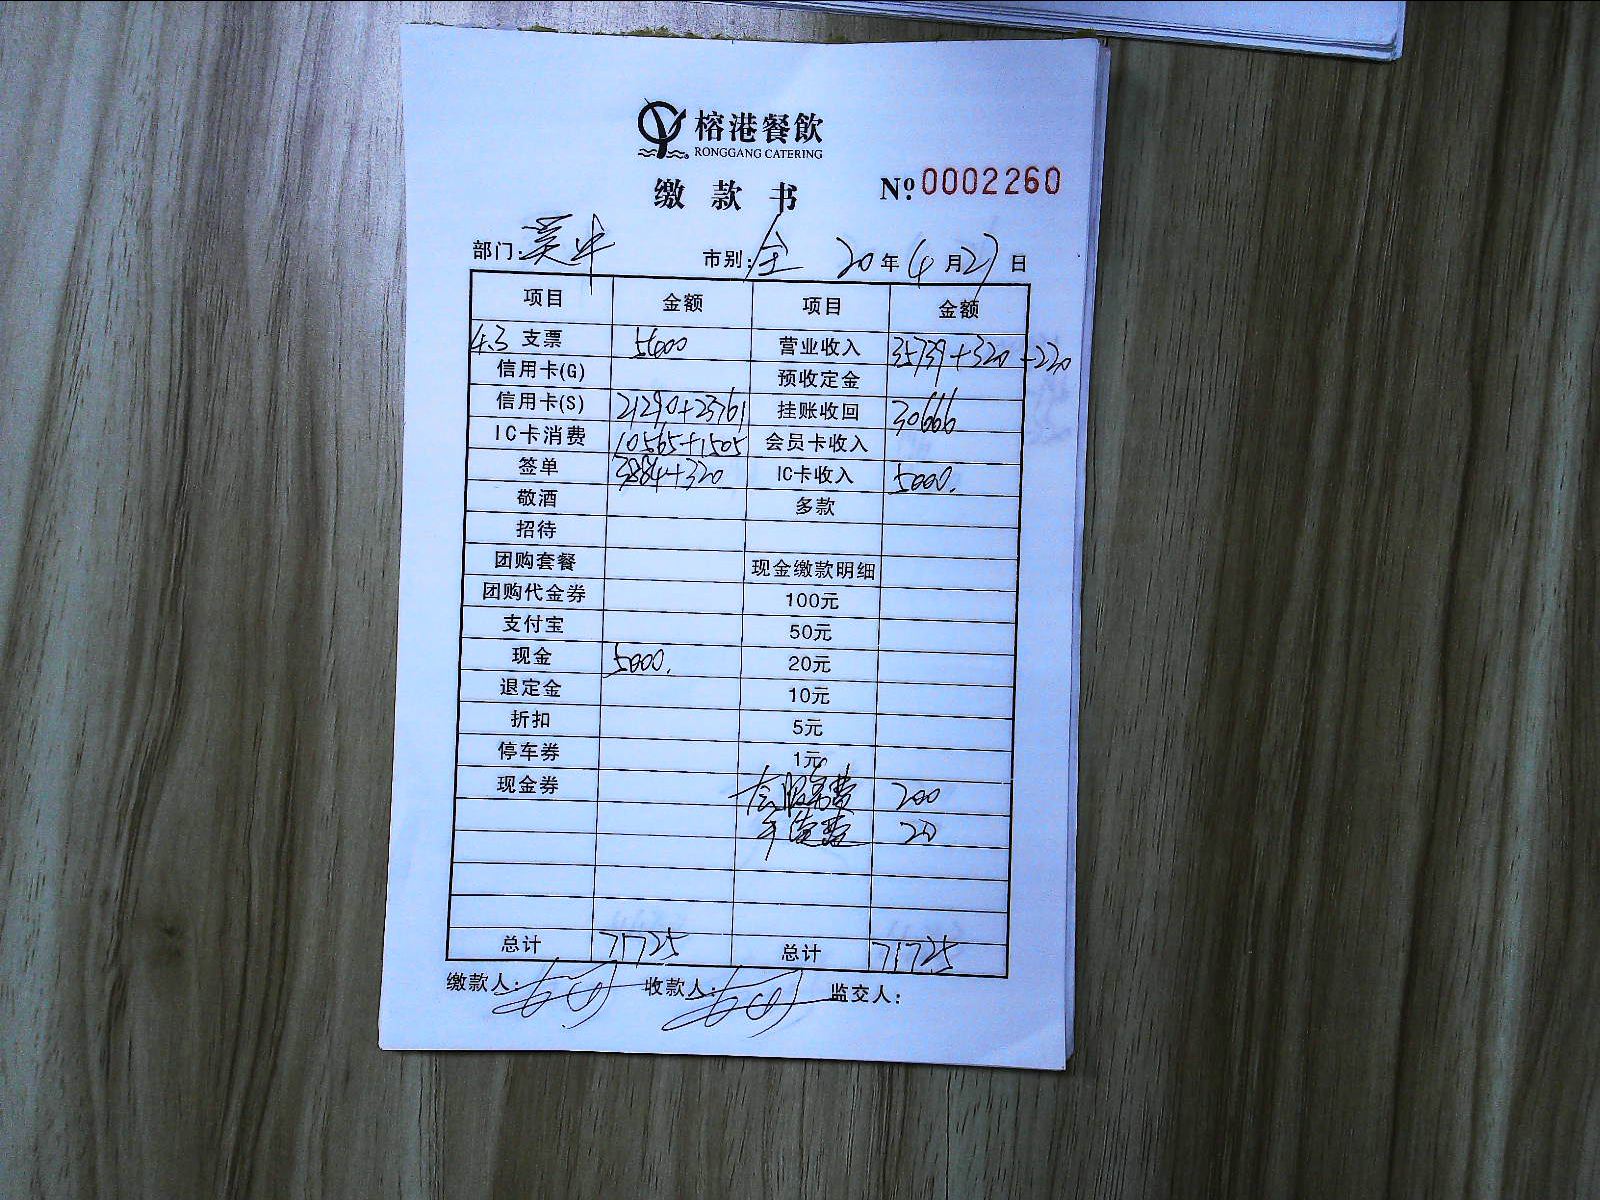 榕港餐飲
RONGGANG CATERING
缴款书 №0002260
部门: 市别:全 20年4月27日
项目 金额 项目 金额
4.3 支票 5400 营业收入 35739+320-220
信用卡(G) 预收定金
信用卡(S) 21290+23761 挂账收回 30666
IC卡消费 10565+1505 会员卡收入
签单 3884+320 IC卡收入 5000.
敬酒 多款
招待
团购套餐 现金缴款明细
团购代金券 100元
支付宝 50元
现金 5000. 20元
退定金 10元
折扣 5元
停车券 1元
现金券 服务费 200
手续费 20
总计 71725 总计 71725
缴款人: 收款人: 监交人: